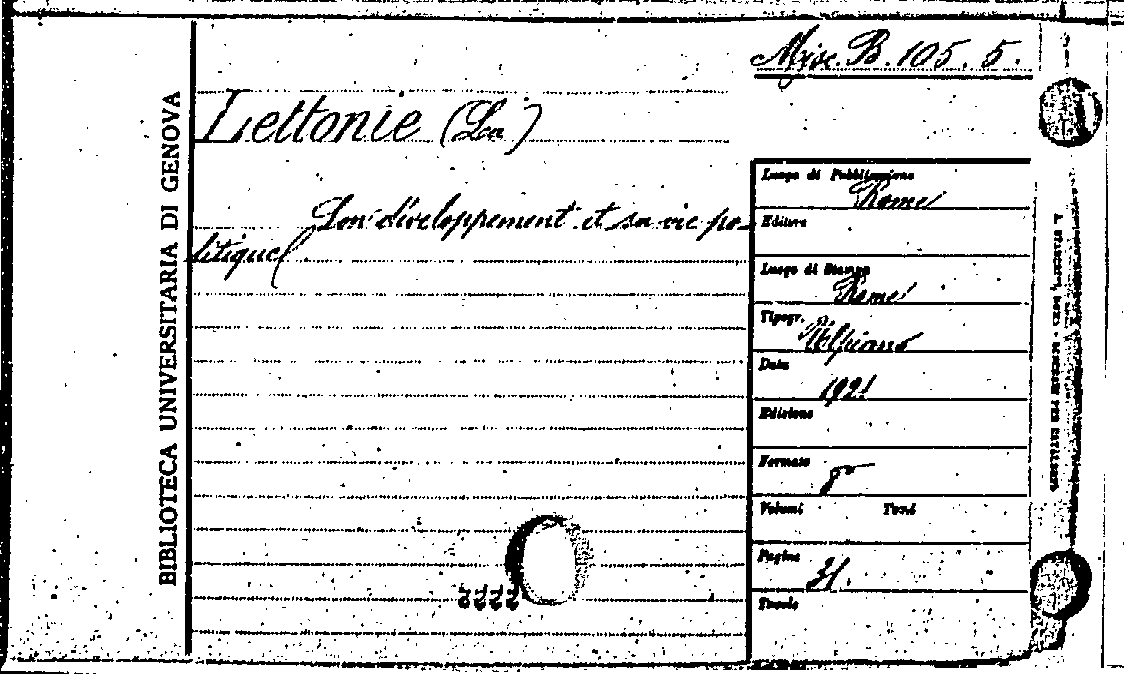 Misc. B. 105. 5.
Lettonie (La)
Son développement et sa vie po-
litique
BIBLIOTECA UNIVERSITARIA DI GENOVA
Luogo di Pubblicazione
Rome
Editore
Luogo di Stampa
Rome
Tipogr.
Ulpiano
Data
1921
Edizione
Formato
8°
Volumi Tomi
Pagine
31.
Tavole